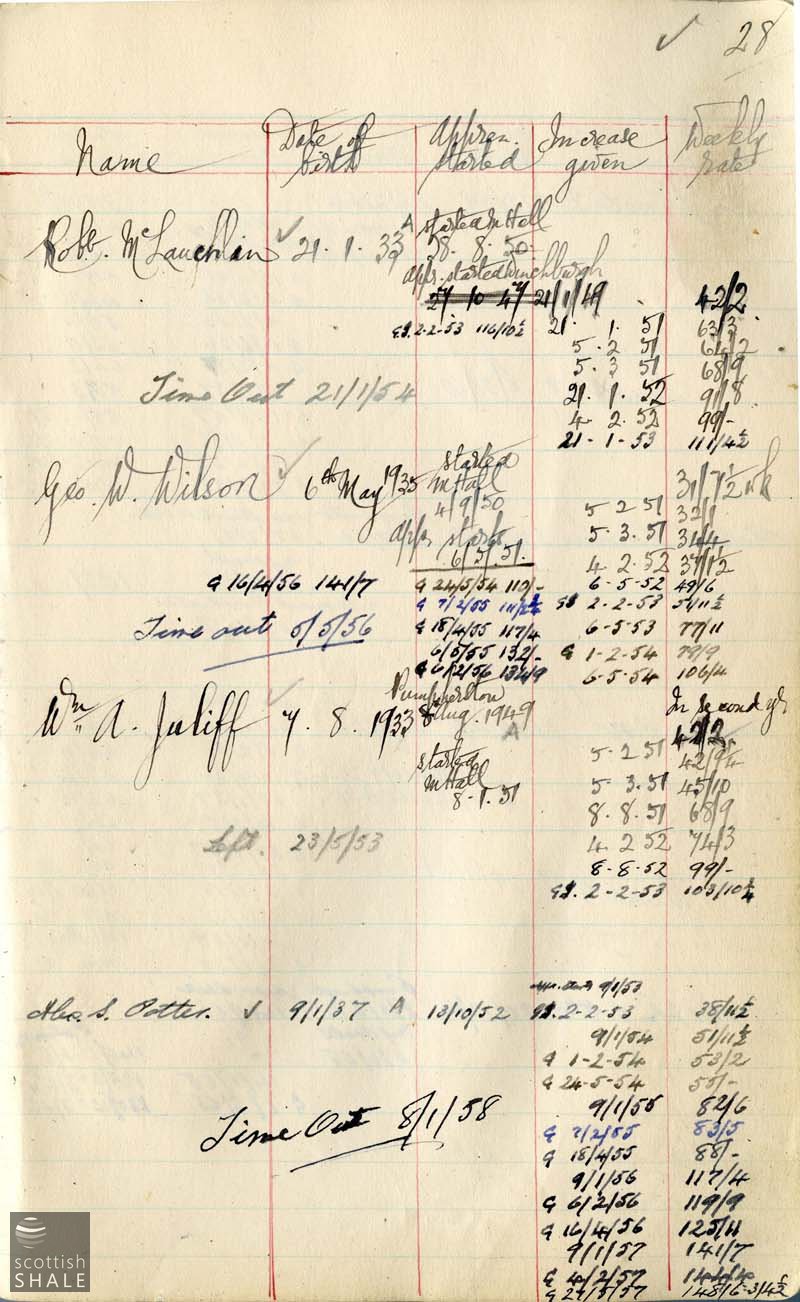 ✓ 28
Name Date of birth Appren. started Increase given Weekly rate
Robt. McLauchlan ✓ 21 . 1 . 33 A started M Hall
28 . 8 . 50
appr. started Winchburgh
27 10 47 21/1/49 42/2
GI. 2-2-53 116/10½ 21 . 1 . 51 63/3
5 . 2 51 64/2
5 . 3 51 68/9
Time Out 21/1/54 21 . 1 . 52 91/8
4 . 2 . 52 99/-
21 - 1 - 53 111/4½
Geo. W. Wilson ✓ 6th May 1935 started
M Hall
4/9/50 31/7½ wk
5 2 51 32/1
appr. starts 5 . 3 . 51 34/4
6/5/51. 4 . 2 . 52 37/1½
G 16/4/56 141/7 G 24/5/54 110/- 6 - 5 - 52 49/6
G 7/2/55 GI 2-2-53 51/11½
Time out 5/5/56 G 18/4/55 117/4 6-5-53 77/11
6/5/55 132/- G 1-2-54 79/9
G 6/2/56 134/9 6-5-54 106/4
Wm. A. Juliff ✓ 7 . 8 . 1933 Pumpherston
8 Aug. 1949 In second yr
A 42/2
started 5 - 2 51 42/9¼
M Hall 5 . 3.51 45/10
8 . 1 . 51 8 . 8 . 51 68/9
Left. 23/5/53 4 . 2 52 74/3
8 - 8 - 52 99/-
GI. 2-2-53 103/10¼
9/1/53
Alex. S. Potter. ✓ 9/1/37 A 13/10/52 GI. 2-2-53 38/11½
9/1/54 51/11½
G 1-2-54 53/2
G 24-5-54 55/-
9/1/55 82/6
Time Out 8/1/58 G 7/2/55 83/5
G 18/4/55 88/-
9/1/56 117/4
G 6/2/56 119/9
G 16/4/56 125/11
9/1/57 141/7
G 4/2/57
G 27/5/57 148/6
scottish
SHALE